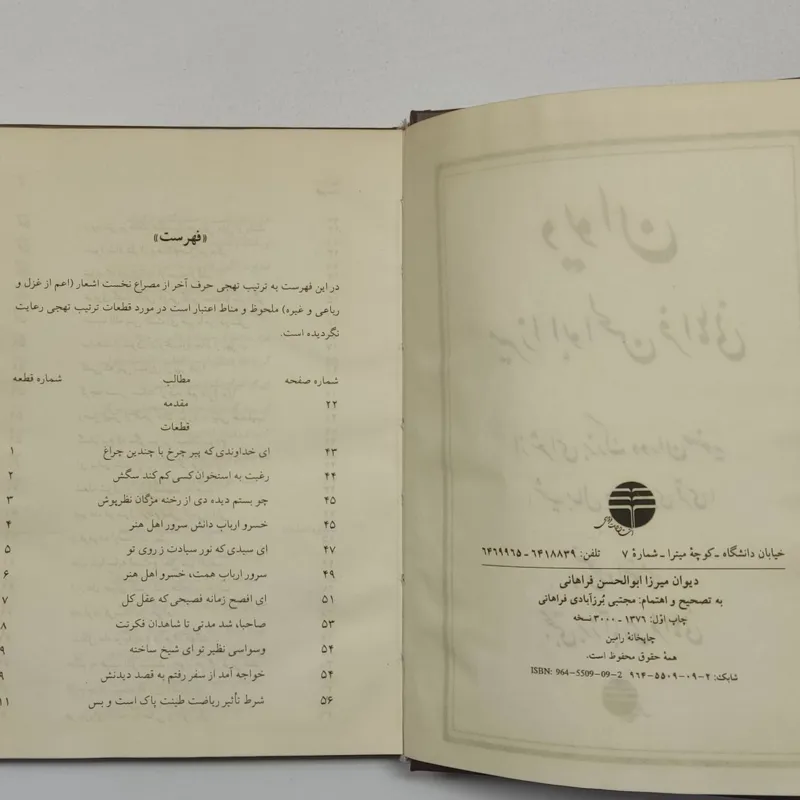 خیابان دانشگاه ـ کوچهٔ میترا ـ شمارهٔ ۷ تلفن: ۶۴۱۸۸۳۹ ـ ۶۴۶۹۹۶۵
دیوان میرزا ابوالحسن فراهانی
به تصحیح و اهتمام: مجتبی بُرزآبادی فراهانی
چاپ اوّل: ۱۳۷۶ ـ ۳۰۰۰ نسخه
چاپخانهٔ رامین
همهٔ حقوق محفوظ است.
شابک: ۲-۰۹-۵۵۰۹-۹۶۴ ISBN: 964-5509-09-2
«فهرست»
در این فهرست به ترتیب تهجی حرف آخر از مصراع نخست اشعار (اعم از غزل و
رباعی و غیره) ملحوظ و مناط اعتبار است در مورد قطعات ترتیب تهجی رعایت
نگردیده است.
شماره صفحه مطالب شماره قطعه
۲۲ مقدمه
قطعات
۴۳ ای خداوندی که پیر چرخ با چندین چراغ ۱
۴۴ رغبت به استخوان کسی کم کند سگش ۲
۴۵ چو بستم دیده دی از رخنه مژگان نظرپوش ۳
۴۵ خسرو ارباب دانش سرور اهل هنر ۴
۴۷ ای سیدی که نور سیادت ز روی تو ۵
۴۹ سرور ارباب همت، خسرو اهل هنر ۶
۵۱ ای افصح زمانه فصیحی که عقل کل ۷
۵۳ صاحبا، شد مدتی تا شاهدان فکرتت ۸
۵۴ وسواسی نظیر تو ای شیخ ساخته ۹
۵۴ خواجه آمد از سفر رفتم به قصد دیدنش ۹
۵۶ شرط تأثیر ریاضت طینت پاک است و بس ۱۱